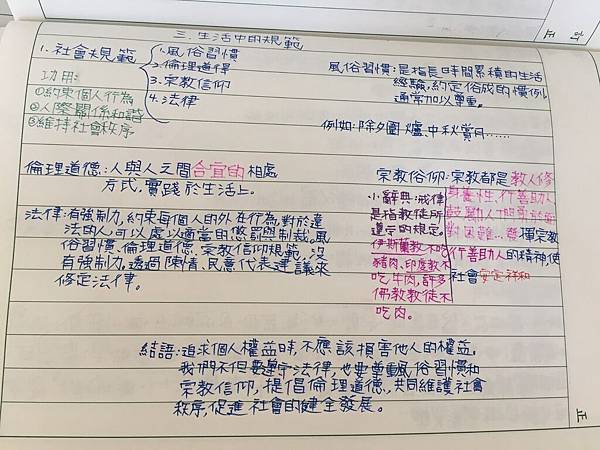 三.生活中的規範
1.社會規範
1.風俗習慣
2.倫理道德
3.宗教信仰
4.法律
功用:
①約束個人行為
②人際關係和諧
③維持社會秩序
風俗習慣:是指長時間累積的生活
經驗,約定俗成的慣例,
通常加以尊重。
例如:除夕圍爐、中秋賞月……
倫理道德:人與人之間合宜的相處
方式,實踐於生活上。
法律:有強制力,約束每個人的外在行為,對於違
法的人可以處以適當的懲罰與制裁。風
俗習慣、倫理道德、宗教信仰規範,沒
有強制力。透過陳情、民意代表建議來
修定法律。
宗教俗仰:宗教都是教人修
身養性,行善助人
鼓勵人們勇於面
對困難…發揮宗教
行善助人的精神,使
社會安定祥和
小辭典:戒律
是指教徒所
遵守的規定。
伊斯蘭教不吃
豬肉、印度教不
吃牛肉,許多
佛教教徒不
吃肉。
結語:追求個人權益時,不應該損害他人的權益。
我們不但要遵守法律,也要尊重風俗習慣和
宗教信仰,提倡倫理道德,共同維護社會
秩序,促進社會的健全發展。
訂
正
正